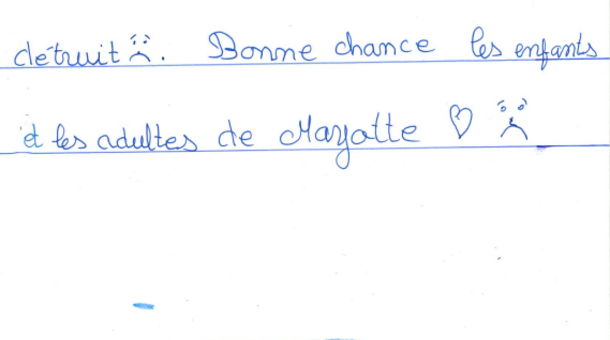 détruit ☹. Bonne chance les enfants
et les adultes de Mayotte ♡ ☹